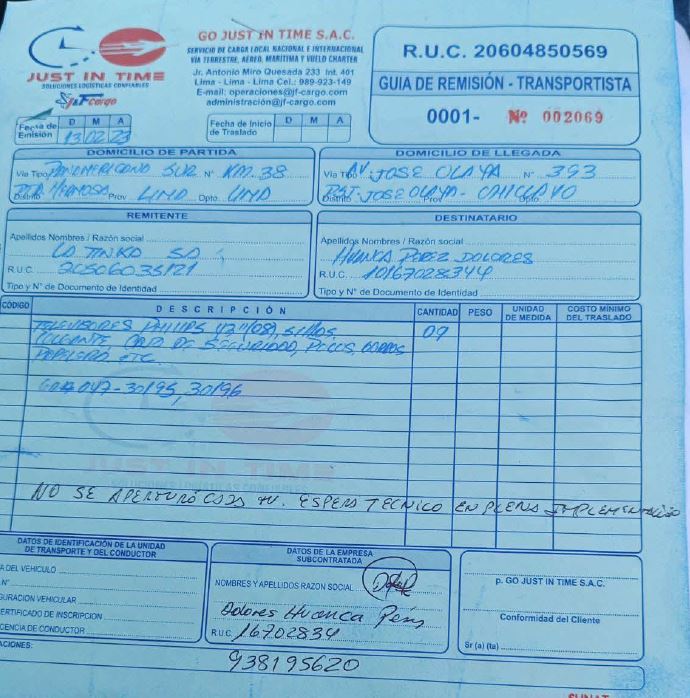 JUST IN TIME
SOLUCIONES LOGISTICAS CONFIABLES
J&Fcargo
GO JUST IN TIME S.A.C.
SERVICIO DE CARGA LOCAL NACIONAL E INTERNACIONAL
VIA TERRESTRE, AEREO, MARITIMA Y VUELO CHARTER
Jr. Antonio Miro Quesada 233 Int. 401
Lima - Lima - Lima Cel.: 989-923-149
E-mail: operaciones@jf-cargo.com
administración@jf-cargo.com
R.U.C. 20604850569
GUIA DE REMISIÓN - TRANSPORTISTA
0001- Nº 002069
Fecha de Emisión D M A
13/02/23
Fecha de Inicio de Traslado D M A
DOMICILIO DE PARTIDA
Via Tipo PANAMERICANO SUR N° KM. 38
Distrito HERMOSA Prov LIMA Dpto LIMA
DOMICILIO DE LLEGADA
Via Tipo AV. JOSE OLAYA N° 393
Distrito JOSE OLAYA - Prov CHICLAYO Dpto
REMITENTE
Apellidos Nombres / Razón social
LA TINKA SA
R.U.C. 20506035121
Tipo y N° de Documento de Identidad
DESTINATARIO
Apellidos Nombres / Razón social
HUANCA PEREZ DOLORES
R.U.C. 10167028344
Tipo y N° de Documento de Identidad
CÓDIGO DESCRIPCIÓN CANTIDAD PESO UNIDAD DE MEDIDA COSTO MÍNIMO DEL TRASLADO
TELEVISORES PHILIPS SILLAS 09
COLGANTE CAJA DE SEGURIDAD, POLOS, GORROS
PAPELERO ETC.
047-30195, 30196
JUST IN TIME
SOLUCIONES LOGISTICAS CONFIABLES
NO SE APERTURÓ CAJA TV. ESPERA TECNICO EN PLENA IMPLEMENTACIÓN
DATOS DE IDENTIFICACIÓN DE LA UNIDAD DE TRANSPORTE Y DEL CONDUCTOR
A DEL VEHICULO
N°
GURACIÓN VEHICULAR
CERTIFICADO DE INSCRIPCION
CENCIA DE CONDUCTOR
DATOS DE LA EMPRESA SUBCONTRATADA
NOMBRES Y APELLIDOS RAZON SOCIAL
Dolores Huanca
R.U.C. 16702834
p. GO JUST IN TIME S.A.C.
Conformidad del Cliente
Sr (a) (ta)
ACIONES:
938195620
SUNAT